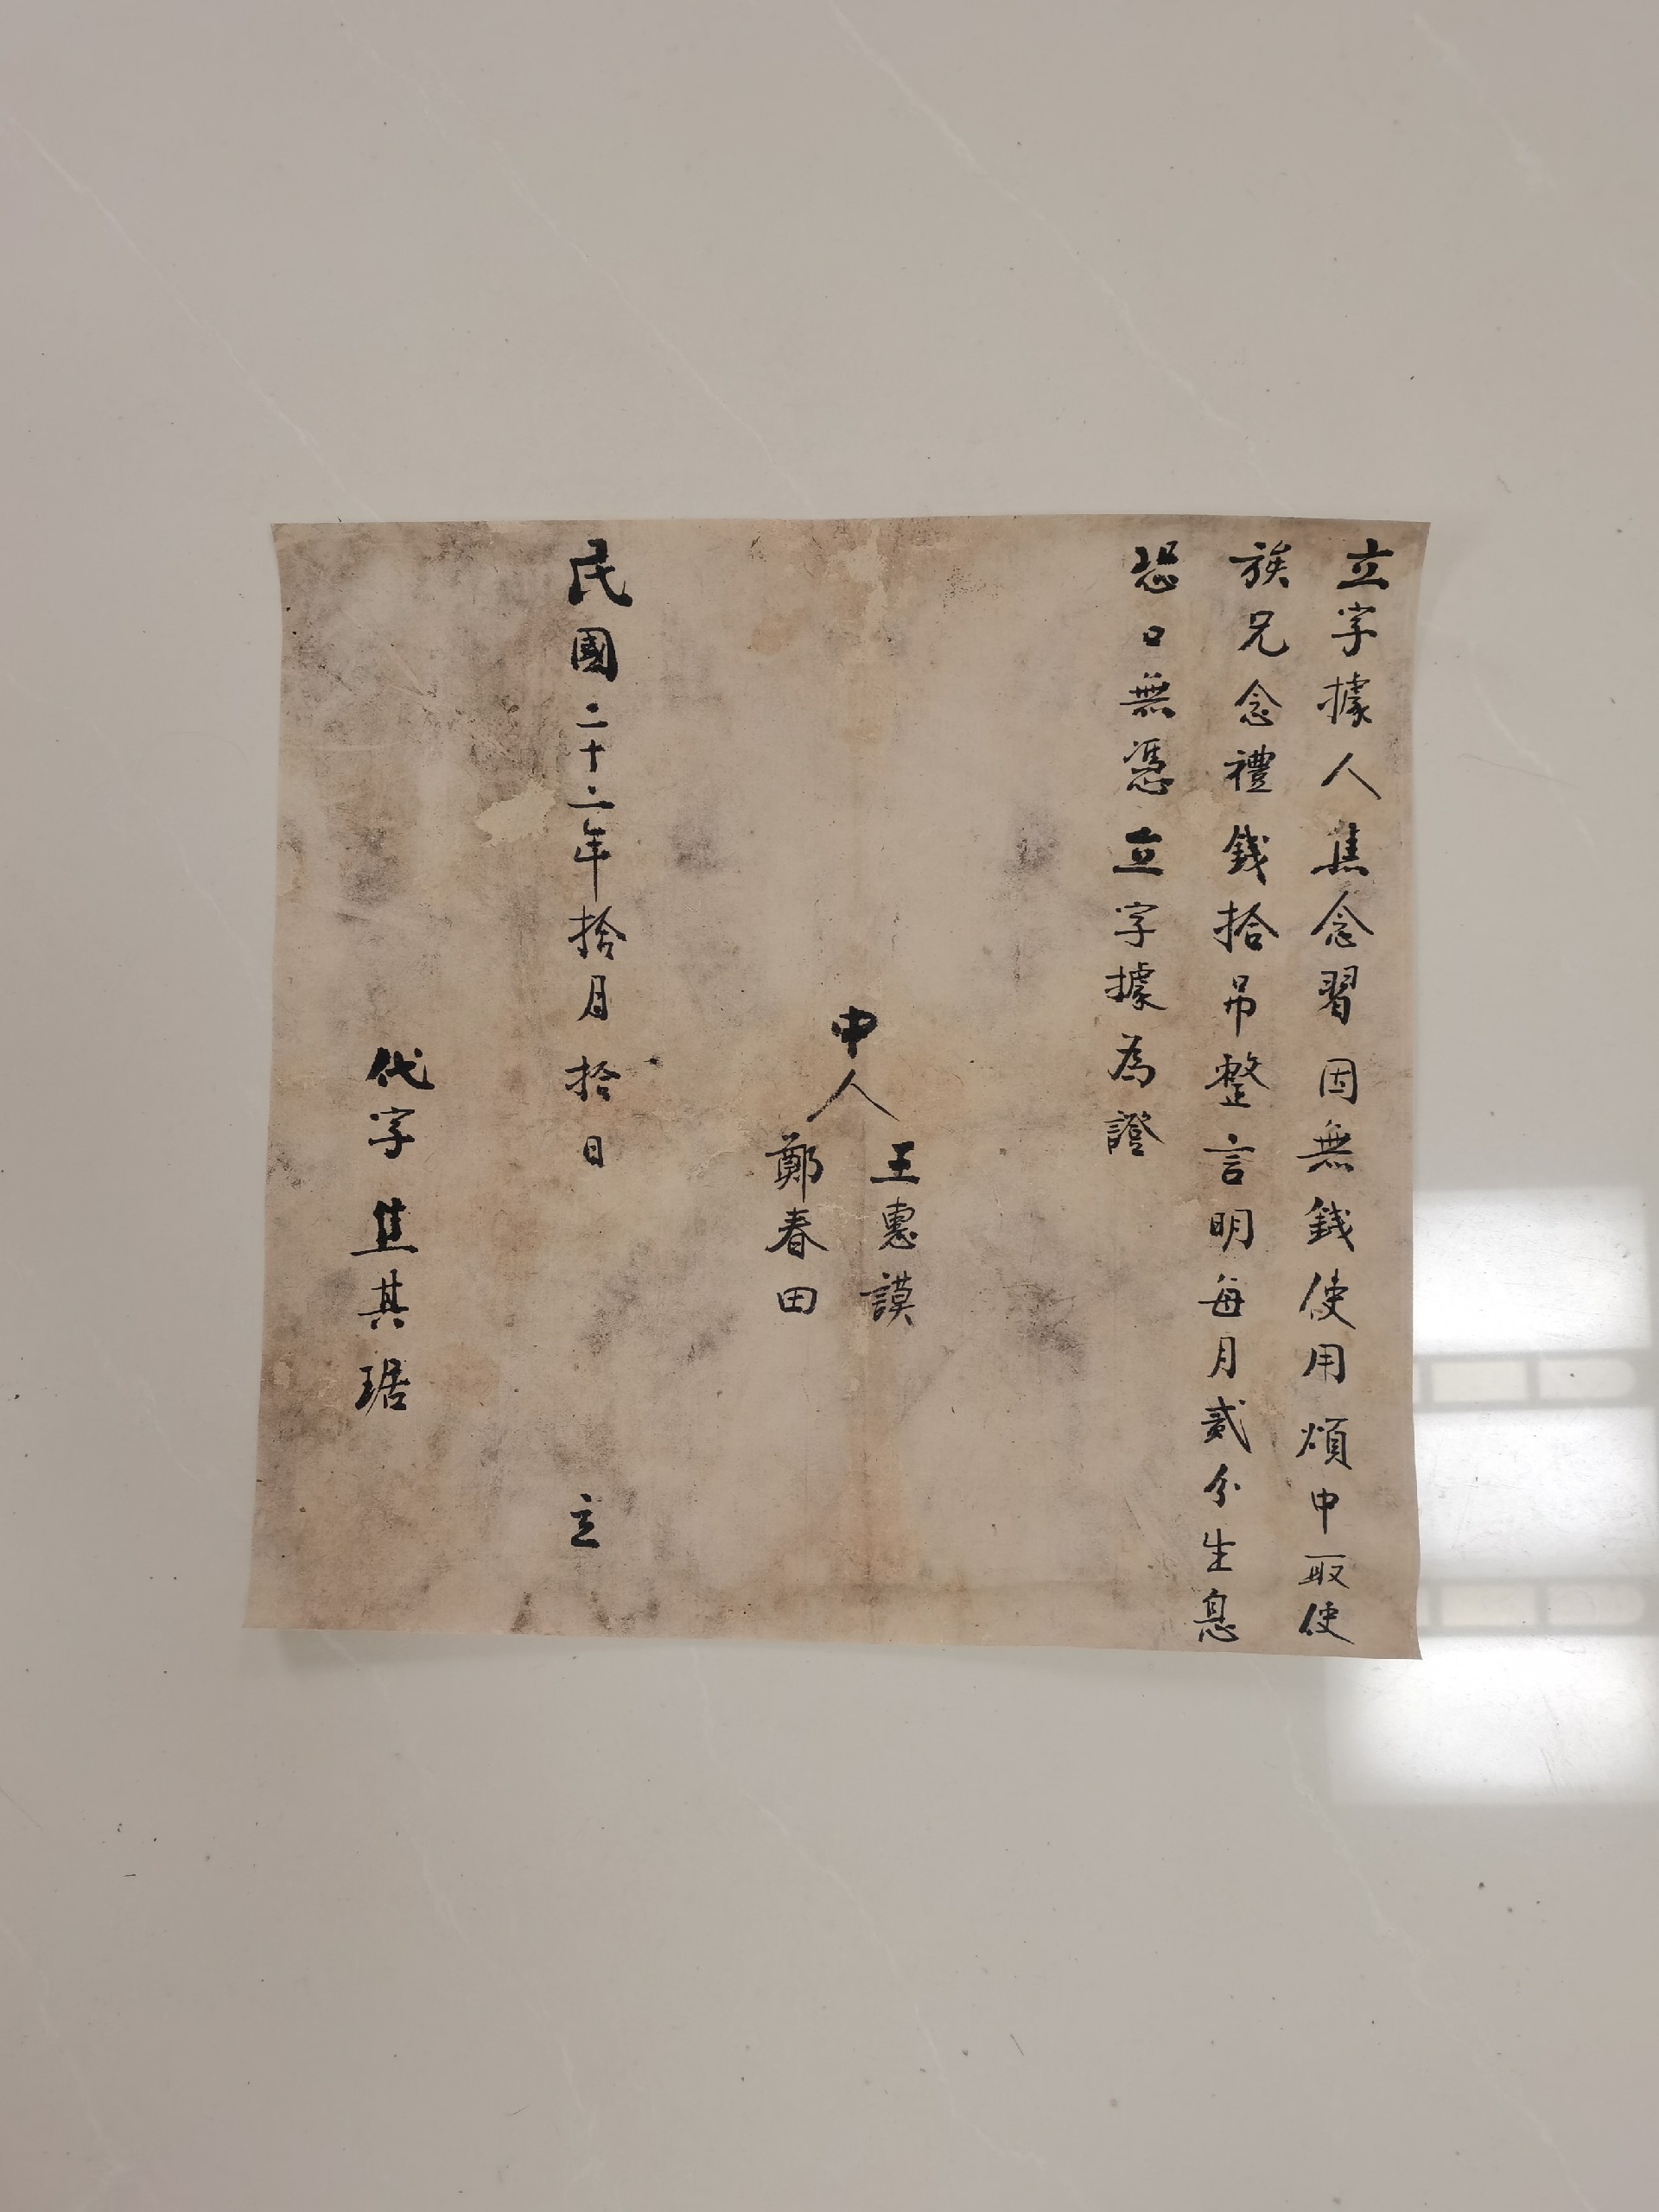 立字據人焦念習因無錢使用煩中取使
族兄念禮錢拾吊整言明每月貳分生息
恐口無憑立字據為證
中人
王惠謨
鄭春田
民國二十二年拾月拾日 立
代字 焦其琚